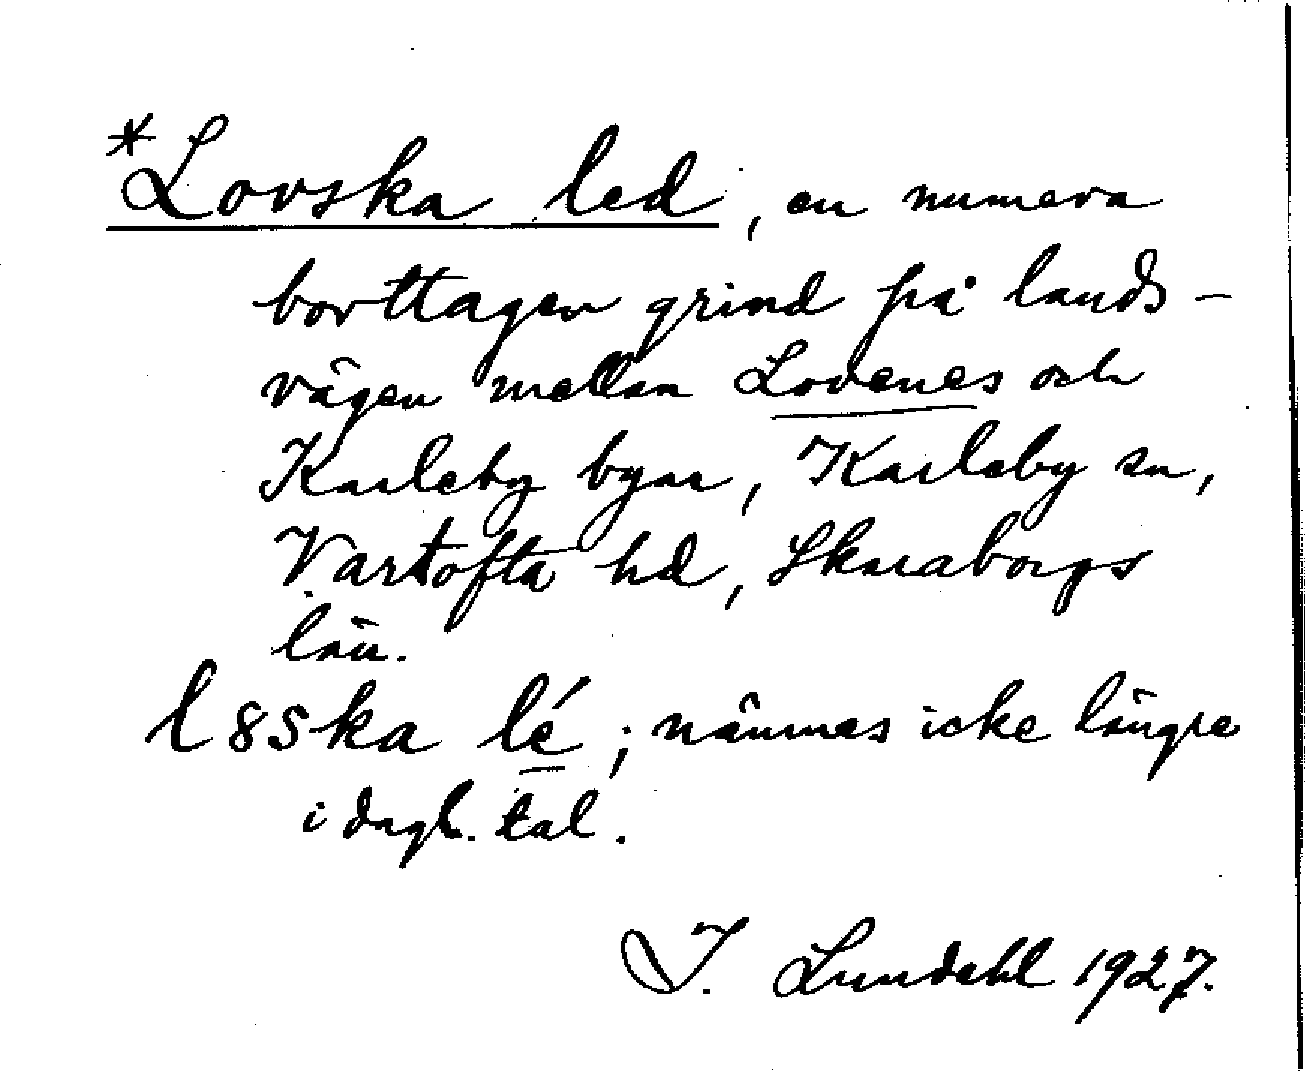 *Lovska led, en numera
borttagen grind på lands-
vägen mellan Lovenes och
Karleby byar, Karleby sn,
Vartofta hd, Skaraborgs
län.
l8ska lé; nämnes icke längre
i dagl. tal.
I. Lundahl 1927.